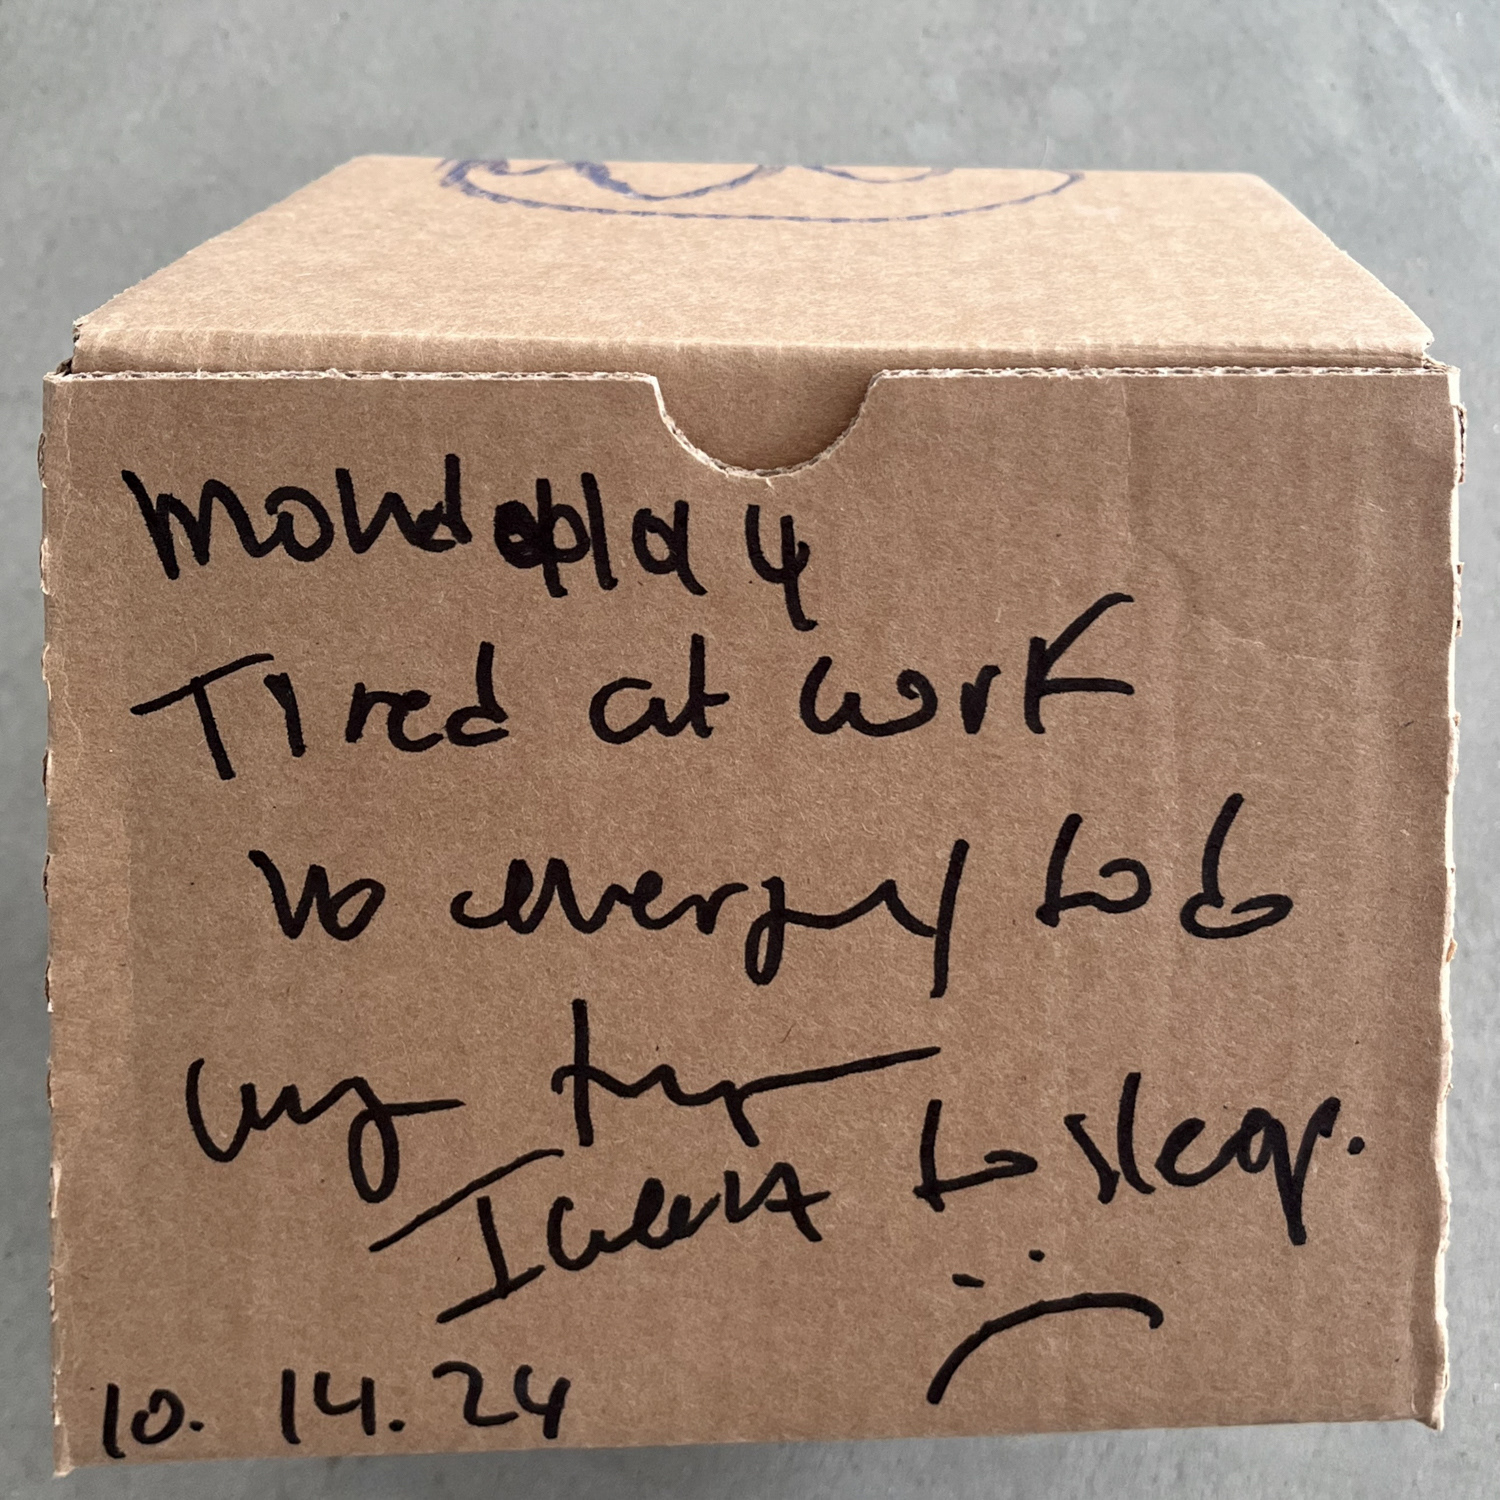 Monday
Tired at work
no energy to do
any
I want to sleep.
10. 14. 24